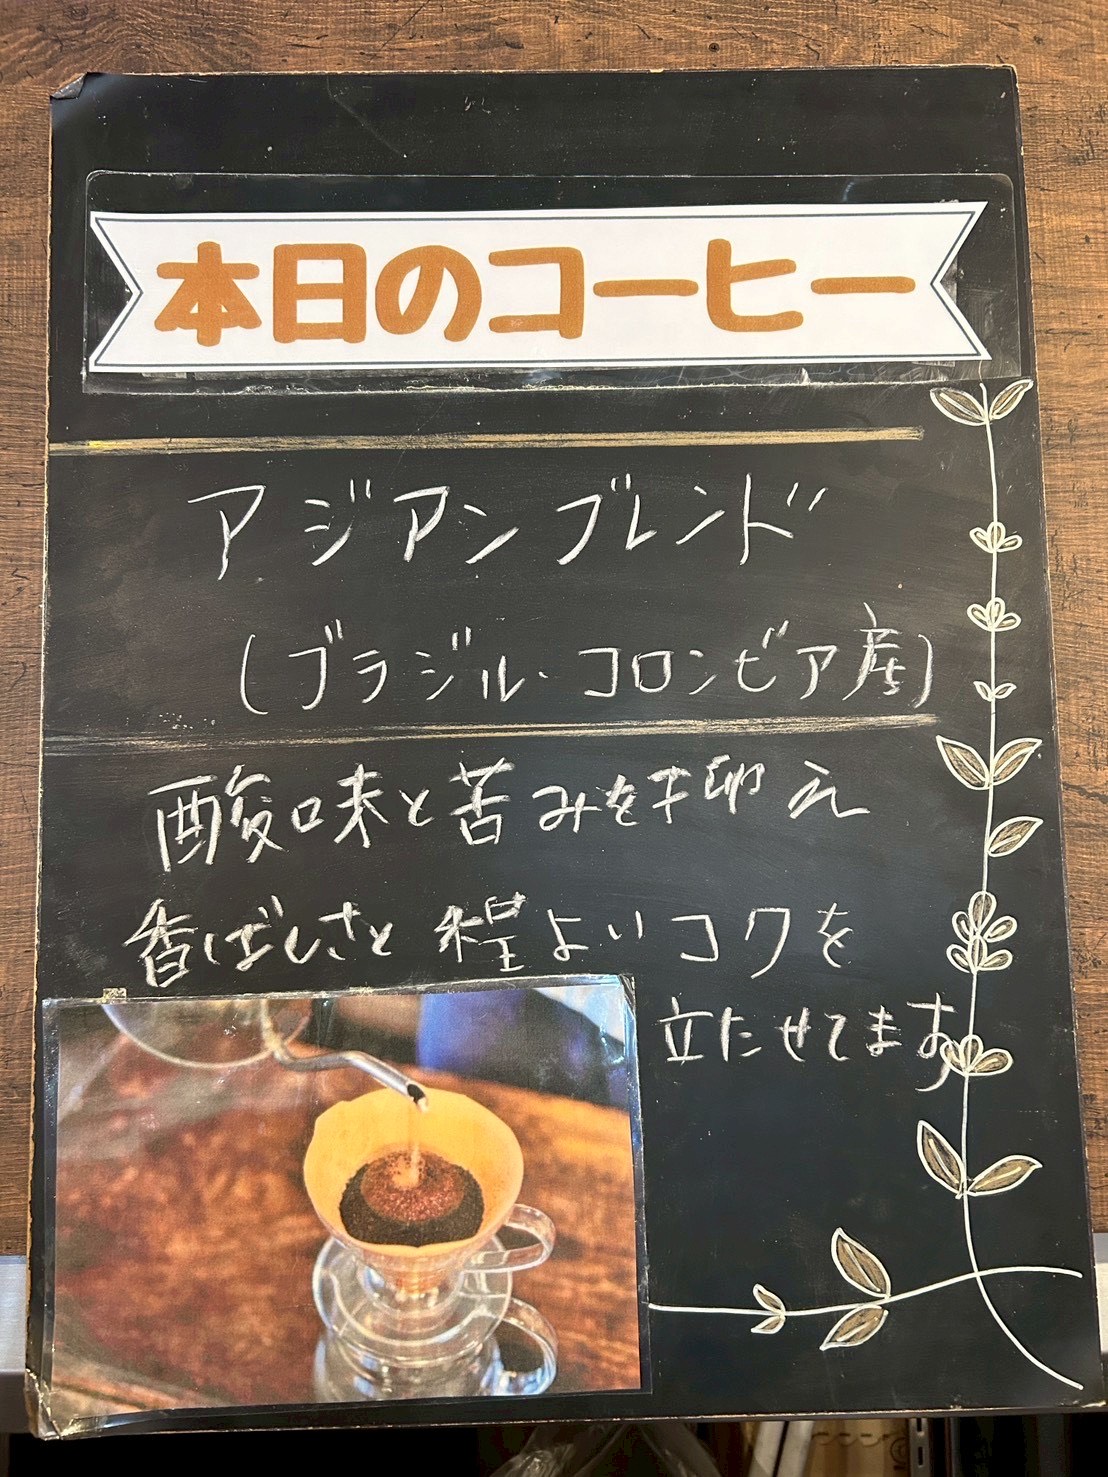 本日のコーヒー
アジアンブレンド
(ブラジル・コロンビア産)
酸味と苦みを抑え
香ばしさと程よいコクを
立たせてます